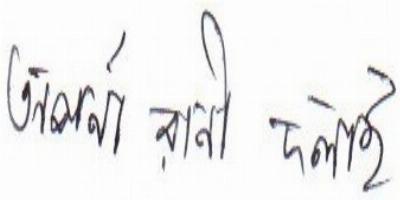 অপর্ণা রানী দলাই